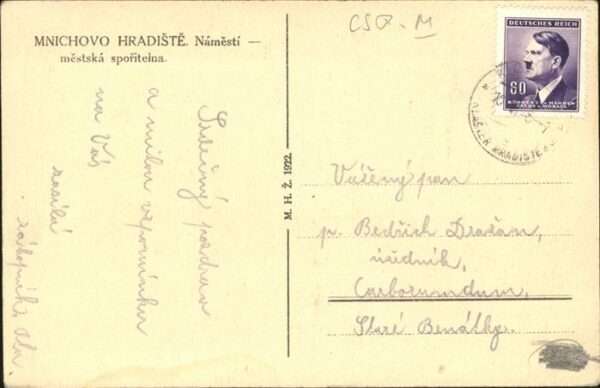 CSR - M
MNICHOVO HRADIŠTĚ. Náměstí —
městská spořitelna.
DEUTSCHES REICH
60
BÖHMEN UND MÄHREN
ČECHY A MORAVA
HRADIŠTĚ
Srdečný pozdrav
a milou vzpomínku
na Vás
zasílá
M. H. Ž. 1922.
Vážený pan
p. Bedřich Dražan,
úředník,
Carborundum,
Staré Benátky.